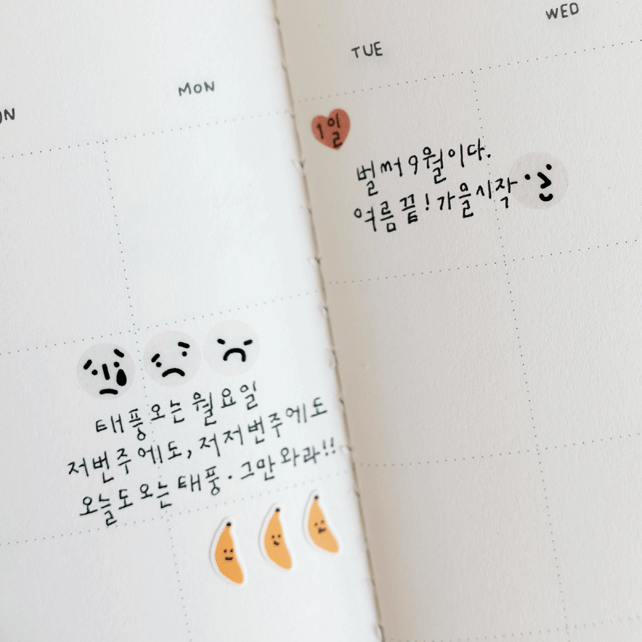 MON
태풍오는 월요일
저번주에도, 저저번주에도
오늘도 오는 태풍. 그만 와라!!
TUE
WED
1일
벌써 9월이다.
여름 끝! 가을시작